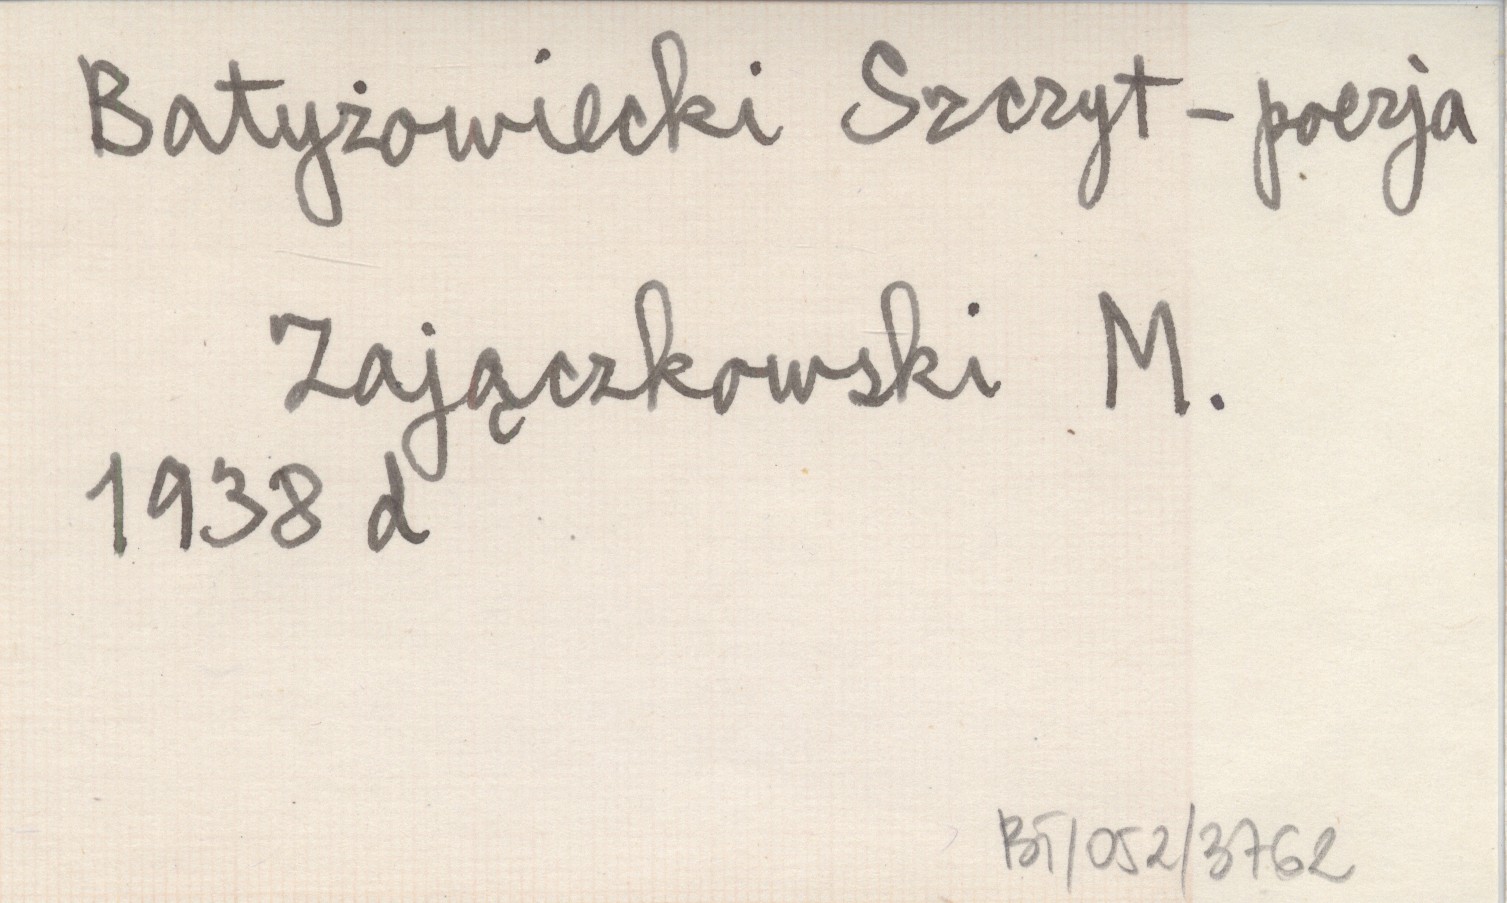 Batyżowiecki Szczyt - poezja
Zajączkowski M.
1938 d
BT/052/3762